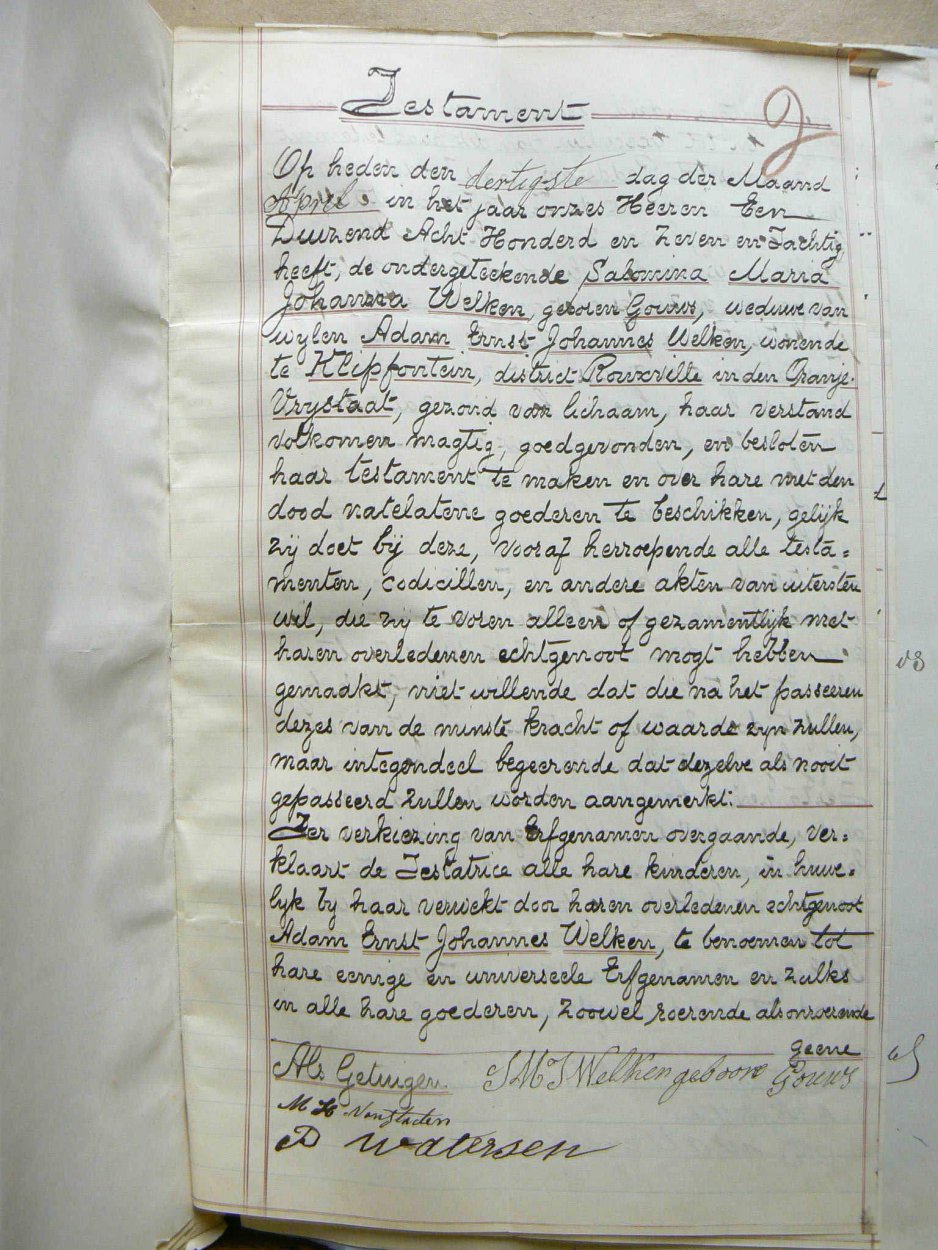 Testament
2
Op heden den dertigste dag der Maand
April in het jaar onzes Heeren Een
Duizend Acht Honderd en Zeven en Tachtig
heeft, de ondergeteekende Salomina Maria
Johanna Welken, geboren Gouws, weduwe van
wylen Adam Ernst Johannes Welken, wonende
te Klipfontein, district Rouxville in den Oranje.
Vrystaat, gezond van lichaam, haar verstand
volkomen magtig, goedgevonden, en besloten
haar testament te maken en over hare met den
dood natelatene goederen te beschikken, gelijk
zij doet bij deze, vooraf herroepende alle testa=
menten, codicillen, en andere akten van uitersten
wil, die zij te voren alleen of gezamentlijk met
haren overledenen echtgenoot mogt hebben
gemaakt, niet willende dat die na het passeeren
dezes van de minste kracht of waarde zyn zullen,
maar integendeel begeerende dat dezelve als nooit
gepasseerd zullen worden aangemerkt:
Ter verkiezing van Erfgenamen overgaande, ver=
klaart de Testatrice alle hare kinderen, in huwe=
lyk by haar verwekt door haren overledenen echtgenoot
Adam Ernst Johannes Welken, te benoemen tot
hare eenige en universeele Erfgenamen en zulks
in alle hare goederen, zoowel roerende als onroerende
geene
Als Getuigen. S M J Welken geboore Gouws
M H Vanstaden
P Watersen